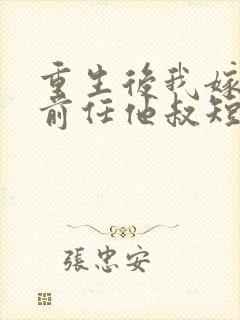 重生後我嫁
前任他叔短
張忠安